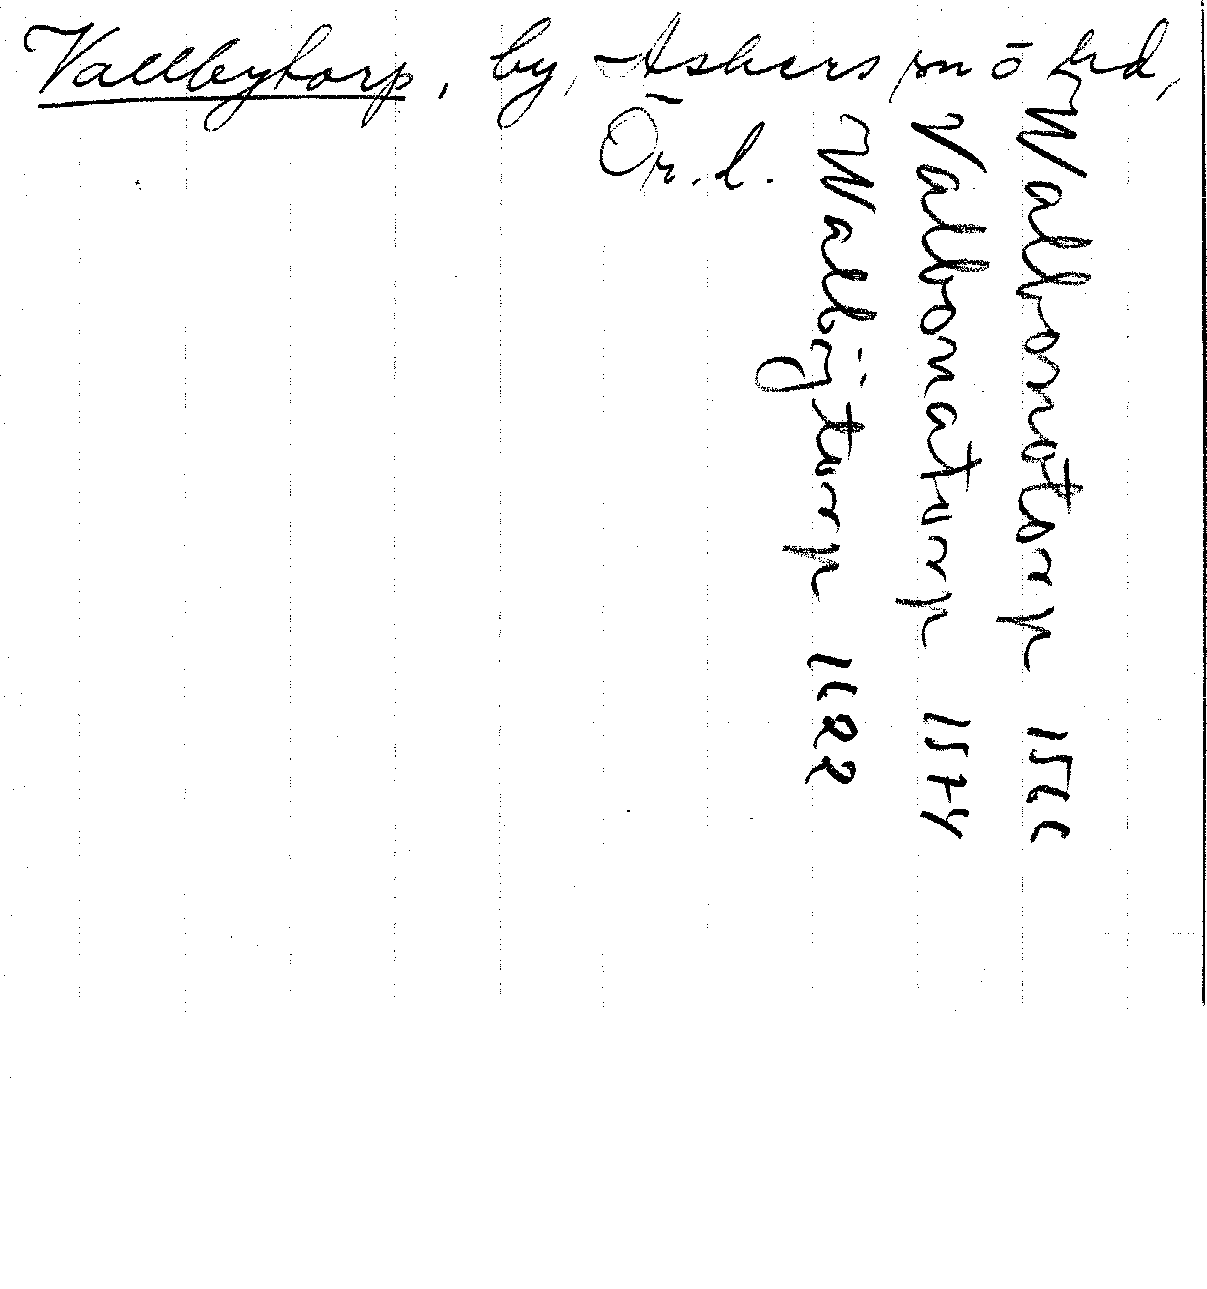 Vallbytorp, by, Askers sn ō hd,
Ör. l.
Walbonotorp 1566
Valbonaturp 1574
Walbÿturp 1622